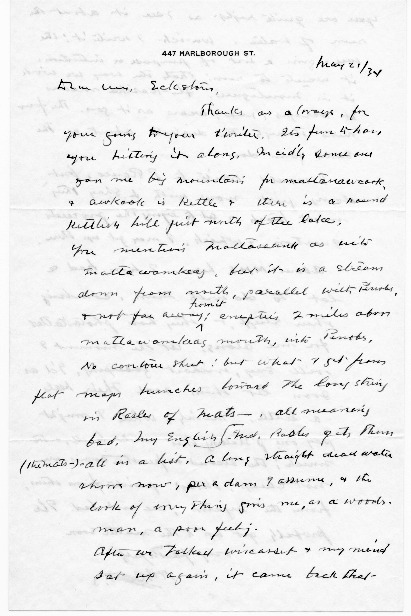 447 MARLBOROUGH ST.
May 21/34
Dear Mrs. Eckstorm,
Thanks as always, for
your going to your t'writer. It's fun to have
you hitting it along. Incid'ly some one
gave me big mountain for mattanawcook,
& awkook is kettle & there is a round
kettlish hill just north of the lake.
You mention Mattaseunk as into
Mattawamkeag, but it is a stream
down from north, parallel with Penobs.,
& not far from it; empties 2 miles above
mattawamkeag mouth, into Penobs.
No contour sheet! but what I get from
flat maps hunches toward the long string
in Rasles of Mats—, all meaning
bad. My English-Ind. Rasles gets them
(the mats-) all in a list. A long straight dead water
shows now, per a dam I assume, & the
look of everything gives me, as a woods-
man, a poor feel'g.
After we talked wiscasset & my mind
sat up again, it came back that